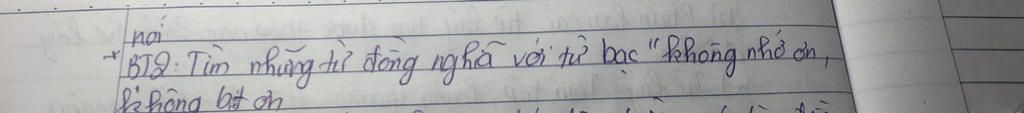 nói
* BT2: Tìm những từ đồng nghĩa với từ bạc "không nhớ ơn,
không bt ơn